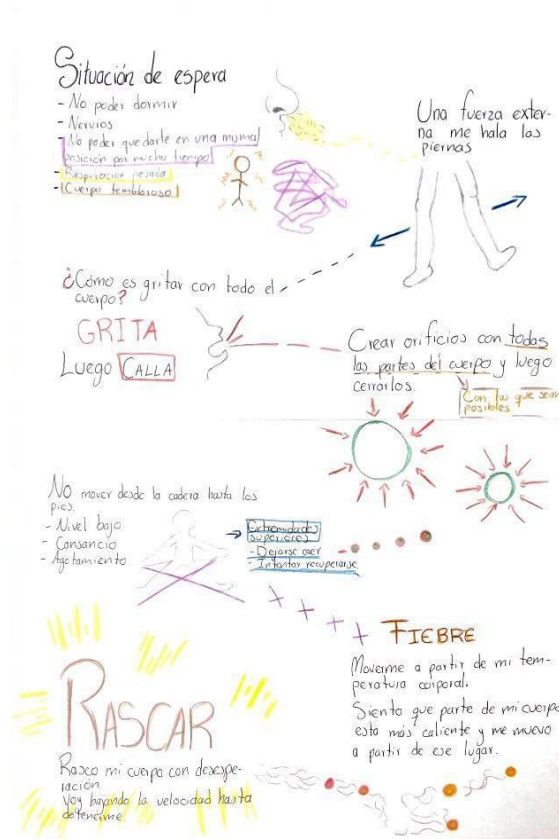 Situación de espera
- No poder dormir
- Nervios
- No poder quedarte en una misma
posición por mucho tiempo
- Respiración pesada
- Cuerpo tembloroso
Una fuerza exter-
na me hala las
piernas
¿Cómo es gritar con todo el
cuerpo?
GRITA
Luego CALLA
Crear orificios con todas
las partes del cuerpo y luego
cerrarlos.
Con los que sean
posibles
No mover desde la cadera hasta los
pies.
- Nivel bajo
- Cansancio
- Agotamiento
Extremidades
superiores
- Dejarse caer
- Intentar recuperarse
FIEBRE
Moverme a partir de mi tem-
peratura corporal.
Siento que parte de mi cuerpo
esta más caliente y me muevo
a partir de ese lugar.
RASCAR
Rasco mi cuerpo con desespe-
ración
Voy bajando la velocidad hasta
detenerme